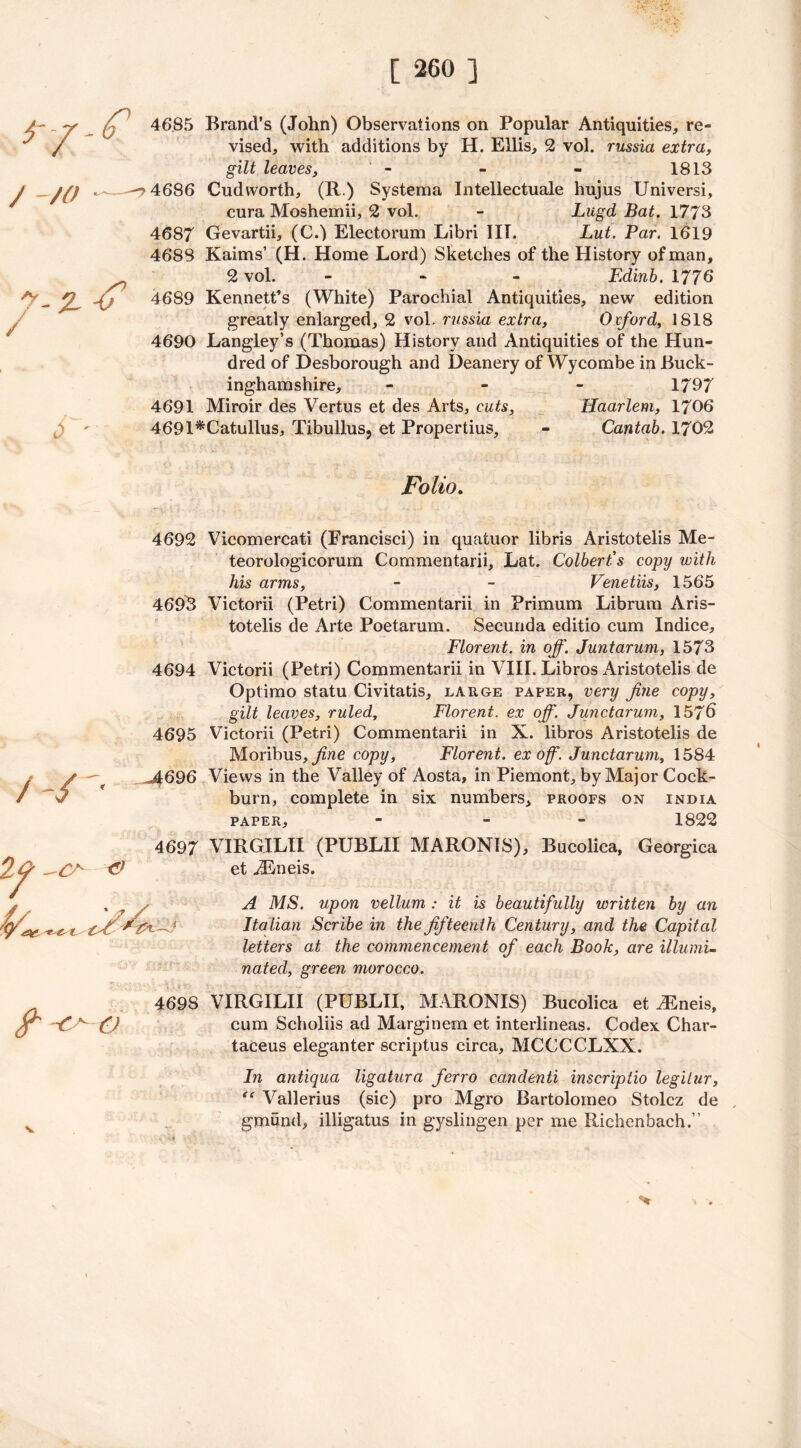 [ 260 ]
5-7-6 4685 Brand's (John) Observations on Popular Antiquities, re-
vised, with additions by H. Ellis, 2 vol. russia extra,
gilt leaves, - - - 1813
1-10 4686 Cudworth, (R.) Systema Intellectuale hujus Universi,
cura Moshemii, 2 vol. - Lugd Bat. 1773
4687 Gevartii, (C.) Electorum Libri III. Lut. Par. 1619
4688 Kaims' (H. Home Lord) Sketches of the History of man,
2 vol. - - - Edinb. 1776
7-2-6 4689 Kennett's (White) Parochial Antiquities, new edition
greatly enlarged, 2 vol. russia extra, Oxford, 1818
4690 Langley's (Thomas) History and Antiquities of the Hun-
dred of Desborough and Deanery of Wycombe in Buck-
inghamshire, - - - 1797
4691 Miroir des Vertus et des Arts, cuts, Haarlem, 1706
4691*Catullus, Tibullus, et Propertius, - Cantab. 1702
Folio.
4692 Vicomercati (Francisci) in quatuor libris Aristotelis Me-
teorologicorum Commentarii, Lat. Colbert's copy with
his arms, - - Venetiis, 1565
4693 Victorii (Petri) Commentarii in Primum Librum Aris-
totelis de Arte Poetarum. Secunda editio cum Indice,
Florent. in off. Juntarum, 1573
4694 Victorii (Petri) Commentarii in VIII. Libros Aristotelis de
Optimo statu Civitatis, LARGE PAPER, very fine copy,
gilt leaves, ruled, Florent. ex off. Junctarum, 1576
4695 Victorii (Petri) Commentarii in X. libros Aristotelis de
Moribus, fine copy, Florent. ex off. Junctarum, 1584
4696 Views in the Valley of Aosta, in Piemont, by Major Cock-
burn, complete in six numbers, PROOFS ON INDIA
PAPER, - - - 1822
4697 VIRGILII (PUBLII MARONIS), Bucolica, Georgica
et Æneis.
A MS. upon vellum : it is beautifully written by an
Italian Scribe in the fifteenth Century, and the Capital
letters at the commencement of each Book, are illumi-
nated, green morocco.
4698 VIRGILII (PUBLII, MARONIS) Bucolica et Æneis,
cum Scholiis ad Marginem et interlineas. Codex Char-
taceus eleganter scriptus circa, MCCCCLXX.
In antiqua ligatura ferro candenti inscriptio legitur,
"Vallerius (sic) pro Mgro Bartolomeo Stolcz de
gmünd, illigatus in gyslingen per me Richenbach."